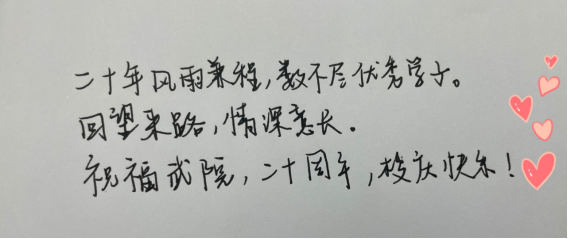 二十年风雨兼程，数不尽优秀学子。
回望来路，情深意长。
祝福武院，二十周年，校庆快乐！